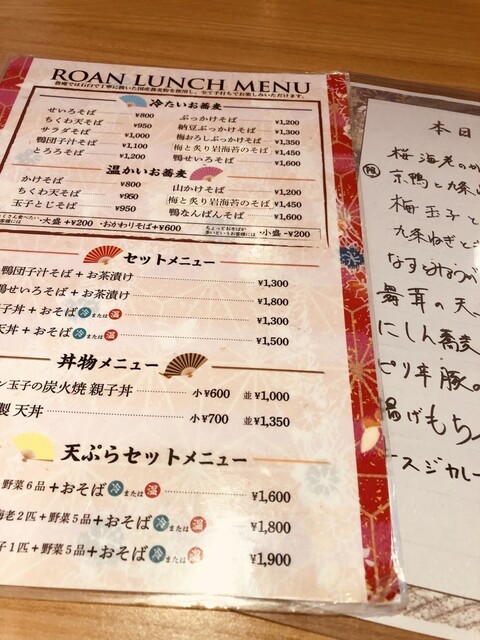 ROAN LUNCH MENU
冷たいお蕎麦
せいろそば ¥800
ちくわ天そば ¥950
サラダそば ¥1,000
鴨団子汁そば ¥1,100
とろろそば ¥1,200
ぶっかけそば ¥1,200
納豆ぶっかけそば ¥1,300
梅おろしぶっかけそば ¥1,350
梅と炙り岩海苔のそば ¥1,450
鴨せいろそば ¥1,600
温かいお蕎麦
かけそば ¥800
ちくわ天そば ¥950
玉子とじそば ¥950
山かけそば ¥1,200
梅と炙り岩海苔のそば ¥1,450
鴨なんばんそば ¥1,600
・大盛 +¥200 ・おかわりそば+¥600 ・小盛 -¥200
セットメニュー
鴨団子汁そば + お茶漬け ¥1,300
鴨せいろそば + お茶漬け ¥1,800
子丼 + おそば 冷 または 温 ¥1,300
天丼 + おそば 冷 または 温 ¥1,500
丼物メニュー
ン玉子の炭火焼 親子丼 小 ¥600 並 ¥1,000
製 天丼 小 ¥700 並 ¥1,350
天ぷらセットメニュー
野菜6品+おそば 冷 または 温 ¥1,600
海老2匹+野菜5品+おそば 冷 または 温 ¥1,800
子1匹+野菜5品+おそば 冷 または 温 ¥1,900
本日
桜海老のか
京鴨と九条
梅玉子と
九条ねぎと
なすとみょうが
舞茸の天
にしん蕎麦
ピリ辛豚の
揚げもち
スジカレー